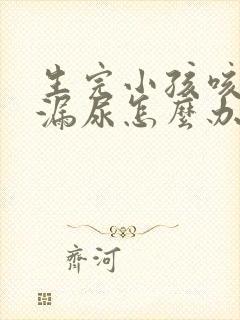 生完小孩咳
漏尿怎麼办
齊河